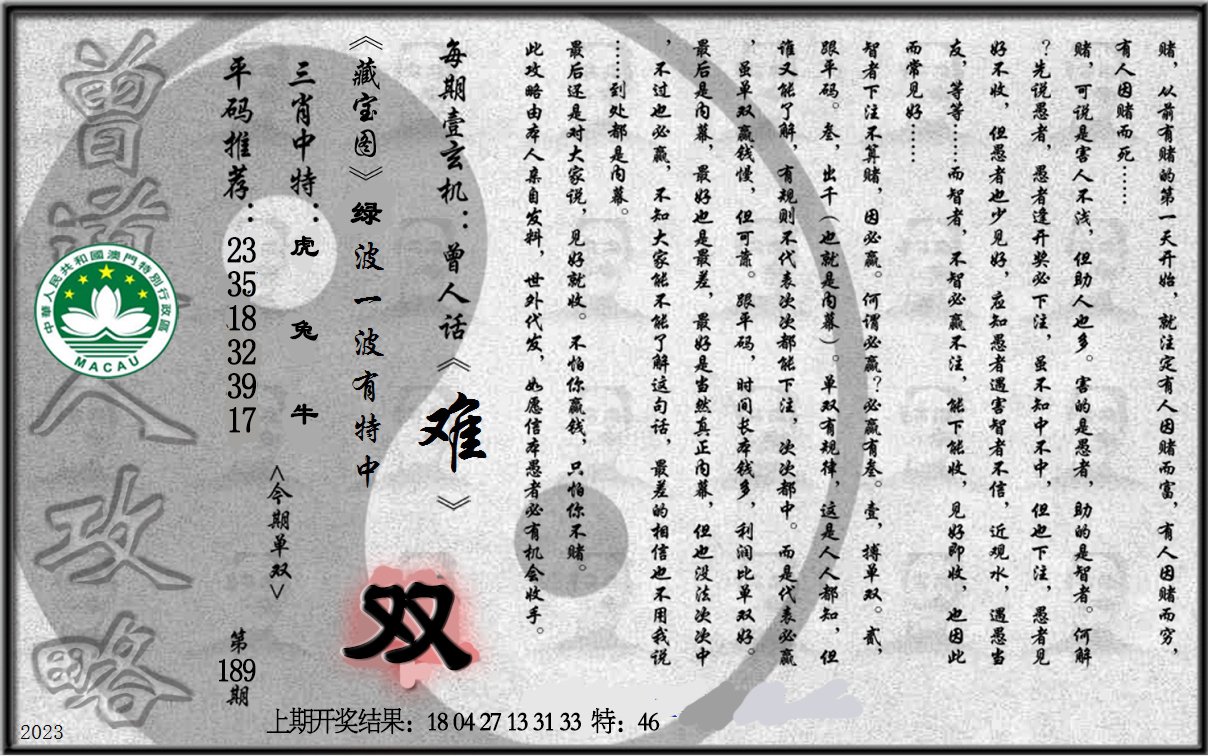 赌，从前有赌的第一天开始，就注定有人因赌而富，有人因赌而穷，
有人因赌而死……
赌，可说是害人不浅，但助人也多。害的是愚者，助的是智者。何解
？先说愚者，愚者逢开奖必下注，虽不知中不中，但也下注，愚者见
好不收，但愚者也少见好，应知愚者遇害智者不信，近观水，遇愚当
友，等等……而智者，不智必赢不注，能下能收，见好即收，也因此
而常见好……
智者下注不算赌，因必赢。何谓必赢？必赢有叁。壹，搏单双。贰，
跟平码。叁，出千（也就是内幕）。单双有规律，这是人人都知，但
谁又能了解，有规则不代表次次都能下注，次次都中。而是代表必赢
，虽单双赢钱慢，但可靠。跟平码，时间长本钱多，利润比单双好。
最后是内幕，最好也是最差，最好是当然真正内幕，但也没法次次中
，不过也必赢，不知大家能不能了解这句话，最差的相信也不用我说
……到处都是内幕。
最后还是对大家说，见好就收。不怕你赢钱，只怕你不赌。
此攻略由本人亲自发料，世外代发，如愿信本愚者必有机会收手。
每期壹玄机：曾人话《难》
《藏宝图》绿波一波有特中
双
三肖中特：虎 兔 牛
<今期单双>
平码推荐：23 35 18 32 39 17
第189期
曾道人攻略
中華人民共和國澳門特別行政區
MACAU
上期开奖结果：18 04 27 13 31 33 特：46
2023